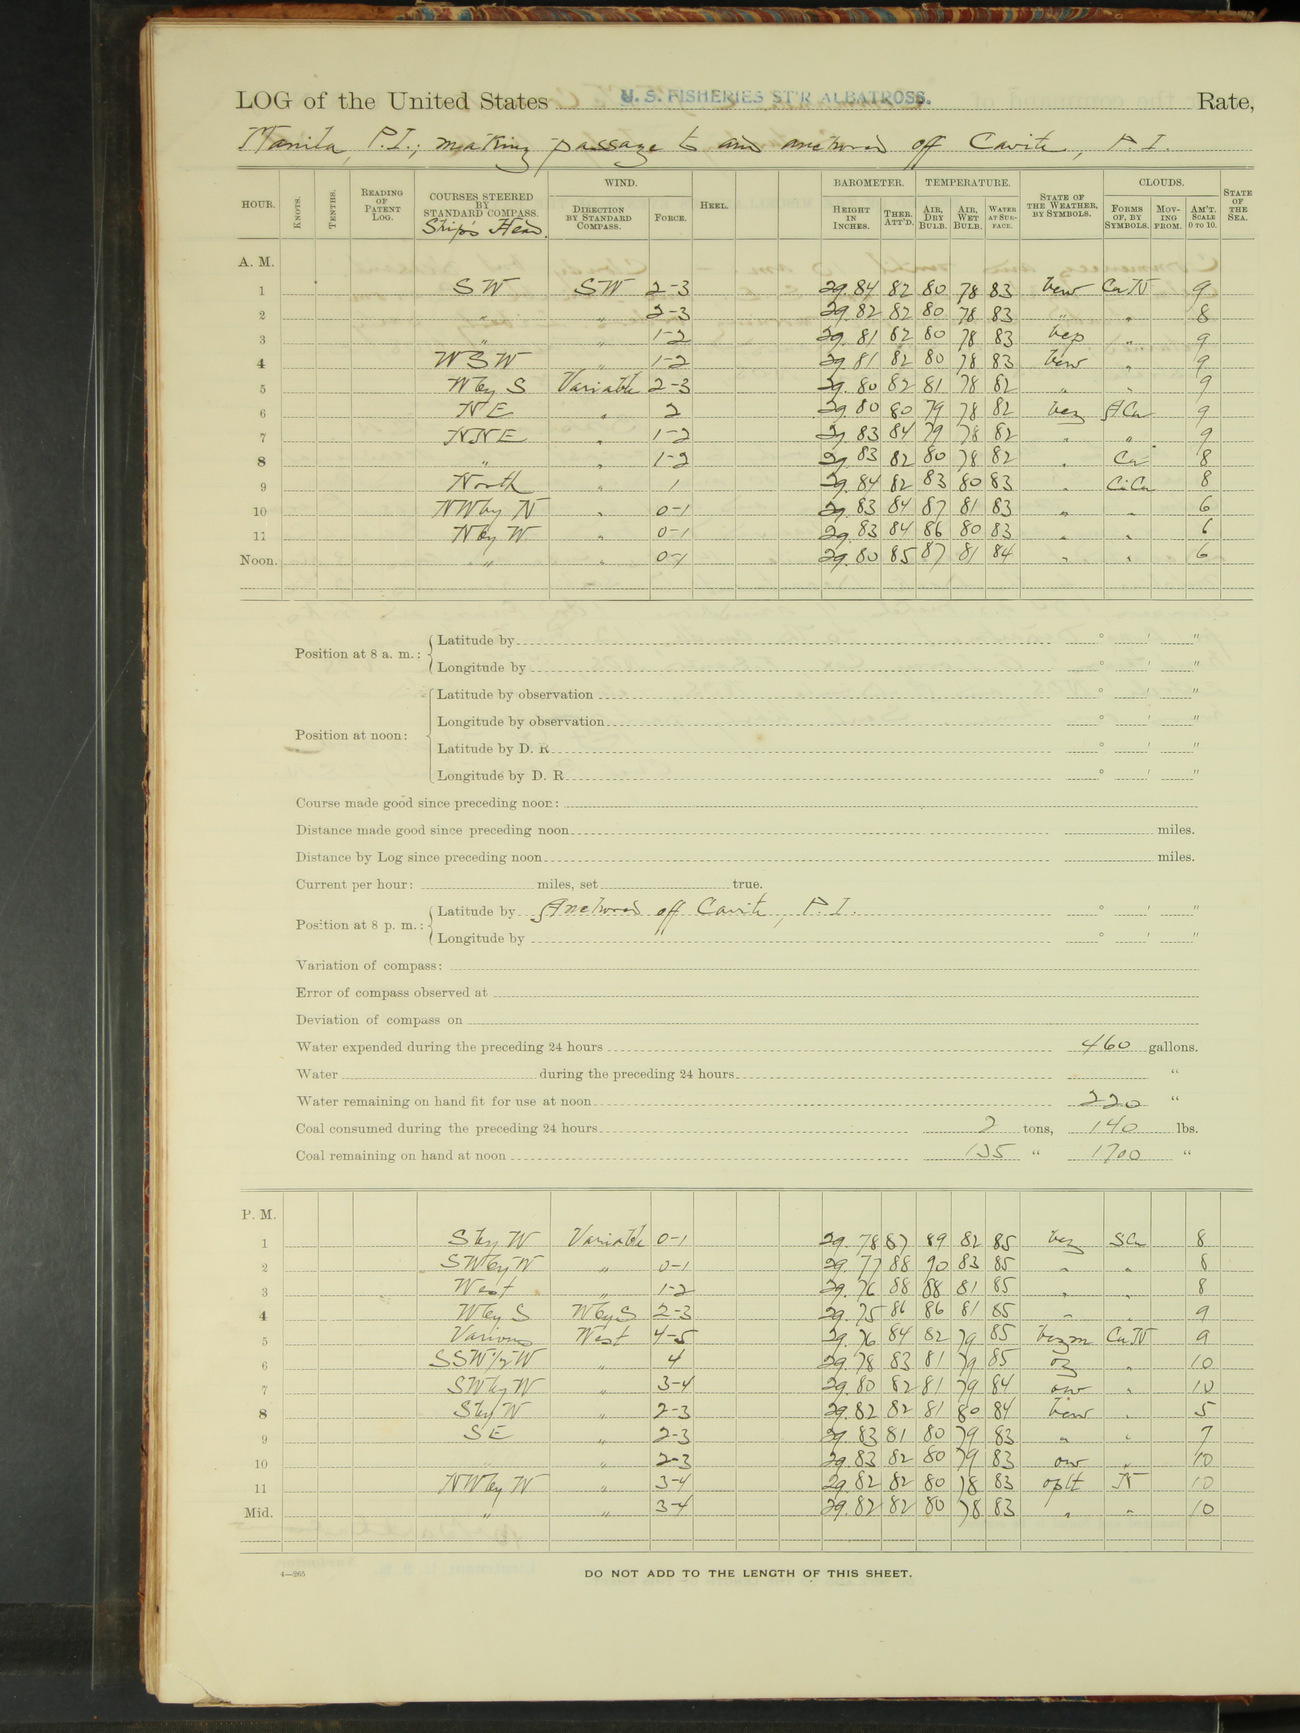 LOG of the United States U. S. FISHERIES ST'R ALBATROSS. Rate,
Manila, P.I.; making passage to and anchored off Cavite, P.I.
HOUR. KNOTS. TENTHS. READING OF PATENT LOG. COURSES STEERED BY STANDARD COMPASS. Ship's Head. WIND. DIRECTION BY STANDARD COMPASS. FORCE. HEEL. BAROMETER. HEIGHT IN INCHES. THER. ATT'D. TEMPERATURE. AIR, DRY BULB. AIR, WET BULB. WATER AT SUR-FACE. STATE OF THE WEATHER, BY SYMBOLS. CLOUDS. FORMS OF, BY SYMBOLS. MOV-ING FROM. AM'T. SCALE 0 TO 10. STATE OF THE SEA.
A. M.
1 SW SW 2-3 29.84 82 80 78 83 bcw CuN 9
2 " " 2-3 29.82 82 80 78 83 " " 8
3 " " 1-2 29.81 82 80 78 83 bcp " 9
4 WSW " 1-2 29.81 82 80 78 83 bcw " 9
5 WbyS Variable 2-3 29.80 82 81 78 82 " " 9
6 NE " 2 29.80 80 79 78 82 bcz ACu 9
7 NNE " 1-2 29.83 84 79 78 82 " " 9
8 " " 1-2 29.83 82 80 78 82 " Cu 8
9 North " 1 29.84 82 83 80 83 " CiCu 8
10 NWby N " 0-1 29.83 84 87 81 83 " " 6
11 Nby W " 0-1 29.83 84 86 80 83 " " 6
Noon. " " 0-1 29.80 85 87 81 84 " " 6
Position at 8 a. m.: Latitude by ° ' "
Longitude by ° ' "
Position at noon: Latitude by observation ° ' "
Longitude by observation ° ' "
Latitude by D. R. ° ' "
Longitude by D. R. ° ' "
Course made good since preceding noon:
Distance made good since preceding noon miles.
Distance by Log since preceding noon miles.
Current per hour: miles, set true.
Position at 8 p. m.: Latitude by Anchored off Cavite, P.I. ° ' "
Longitude by ° ' "
Variation of compass:
Error of compass observed at
Deviation of compass on
Water expended during the preceding 24 hours 460 gallons.
Water during the preceding 24 hours "
Water remaining on hand fit for use at noon 220 "
Coal consumed during the preceding 24 hours 2 tons, 140 lbs.
Coal remaining on hand at noon " 1700 "
P. M.
1 Sby W Variable 0-1 29.78 87 89 82 85 bcz SCu 8
2 SWbyW " 0-1 29.77 88 90 83 85 " " 8
3 West " 1-2 29.76 88 88 81 85 " " 8
4 Wby S WbyS 2-3 29.75 86 86 81 85 " " 9
5 Various West 4-5 29.76 84 82 79 85 bczm CuN 9
6 SSW1/2W " 4 29.78 83 81 79 85 oz " 10
7 SWbyW " 3-4 29.80 82 81 79 84 ow " 10
8 SbyW " 2-3 29.82 82 81 80 84 bcw " 5
9 SE " 2-3 29.83 81 80 79 83 " " 7
10 " 2-3 29.83 82 80 79 83 ow " 10
11 NWbyW " 3-4 29.82 82 80 78 83 oplt N 10
Mid. " " 3-4 29.82 82 80 78 83 " " 10
4—265
DO NOT ADD TO THE LENGTH OF THIS SHEET.